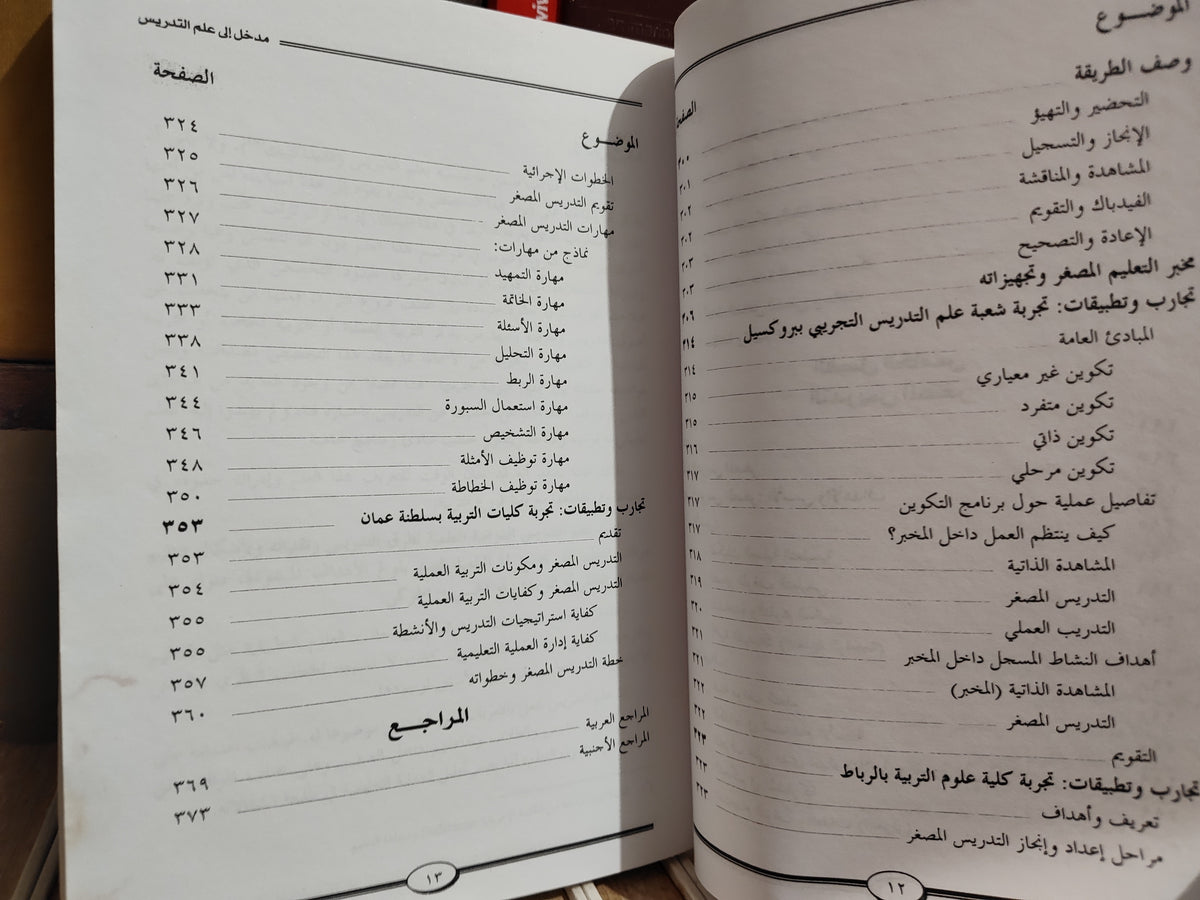 الموضـــوع الصفحة
وصف الطريقة ٣٠٠
التحضير والتهيؤ ٣٠١
الإنجاز والتسجيل ٣٠٢
المشاهدة والمناقشة ٣٠٢
الفيدباك والتقويم ٣٠٣
الإعادة والتصحيح ٣٠٣
مخبر التعليم المصغر وتجهيزاته ٣٠٦
تجارب وتطبيقات: تجربة شعبة علم التدريس التجريبي ببروكسيل ٣١٤
المبادئ العامة ٣١٤
تكوين غير معياري ٣١٥
تكوين متفرد ٣١٥
تكوين ذاتي ٣١٦
تكوين مرحلي ٣١٧
تفاصيل عملية حول برنامج التكوين ٣١٧
كيف ينتظم العمل داخل المخبر؟ ٣١٧
المشاهدة الذاتية ٣١٨
التدريس المصغر ٣١٩
التدريب العملي ٣٢٠
أهداف النشاط المسجل داخل المخبر ٣٢١
المشاهدة الذاتية (المخبر) ٣٢١
التدريس المصغر ٣٢٢
التقويم ٣٢٢
تجارب وتطبيقات: تجربة كلية علوم التربية بالرباط ٣٢٣
تعريف وأهداف ٣٢٣
مراحل إعداد وإنجاز التدريس المصغر ٣٢٣
١٢
مدخل إلى علم التدريس
الموضـــوع الصفحة
الخطوات الإجرائية ٣٢٤
تقويم التدريس المصغر ٣٢٥
مهارات التدريس المصغر ٣٢٦
نماذج من مهارات: ٣٢٧
مهارة التمهيد ٣٢٨
مهارة الخاتمة ٣٣١
مهارة الأسئلة ٣٣٣
مهارة التحليل ٣٣٨
مهارة الربط ٣٤١
مهارة استعمال السبورة ٣٤٤
مهارة التشخيص ٣٤٦
مهارة توظيف الأمثلة ٣٤٨
مهارة توظيف الخطاطة ٣٥٠
تجارب وتطبيقات: تجربة كليات التربية بسلطنة عمان ٣٥٣
تقديم ٣٥٣
التدريس المصغر ومكونات التربية العملية ٣٥٤
التدريس المصغر وكفايات التربية العملية ٣٥٥
كفاية استراتيجيات التدريس والأنشطة ٣٥٥
كفاية إدارة العملية التعليمية ٣٥٧
خطة التدريس المصغر وخطواته ٣٦٠
المراجـــع
المراجع العربية ٣٦٩
المراجع الأجنبية ٣٧٣
١٣